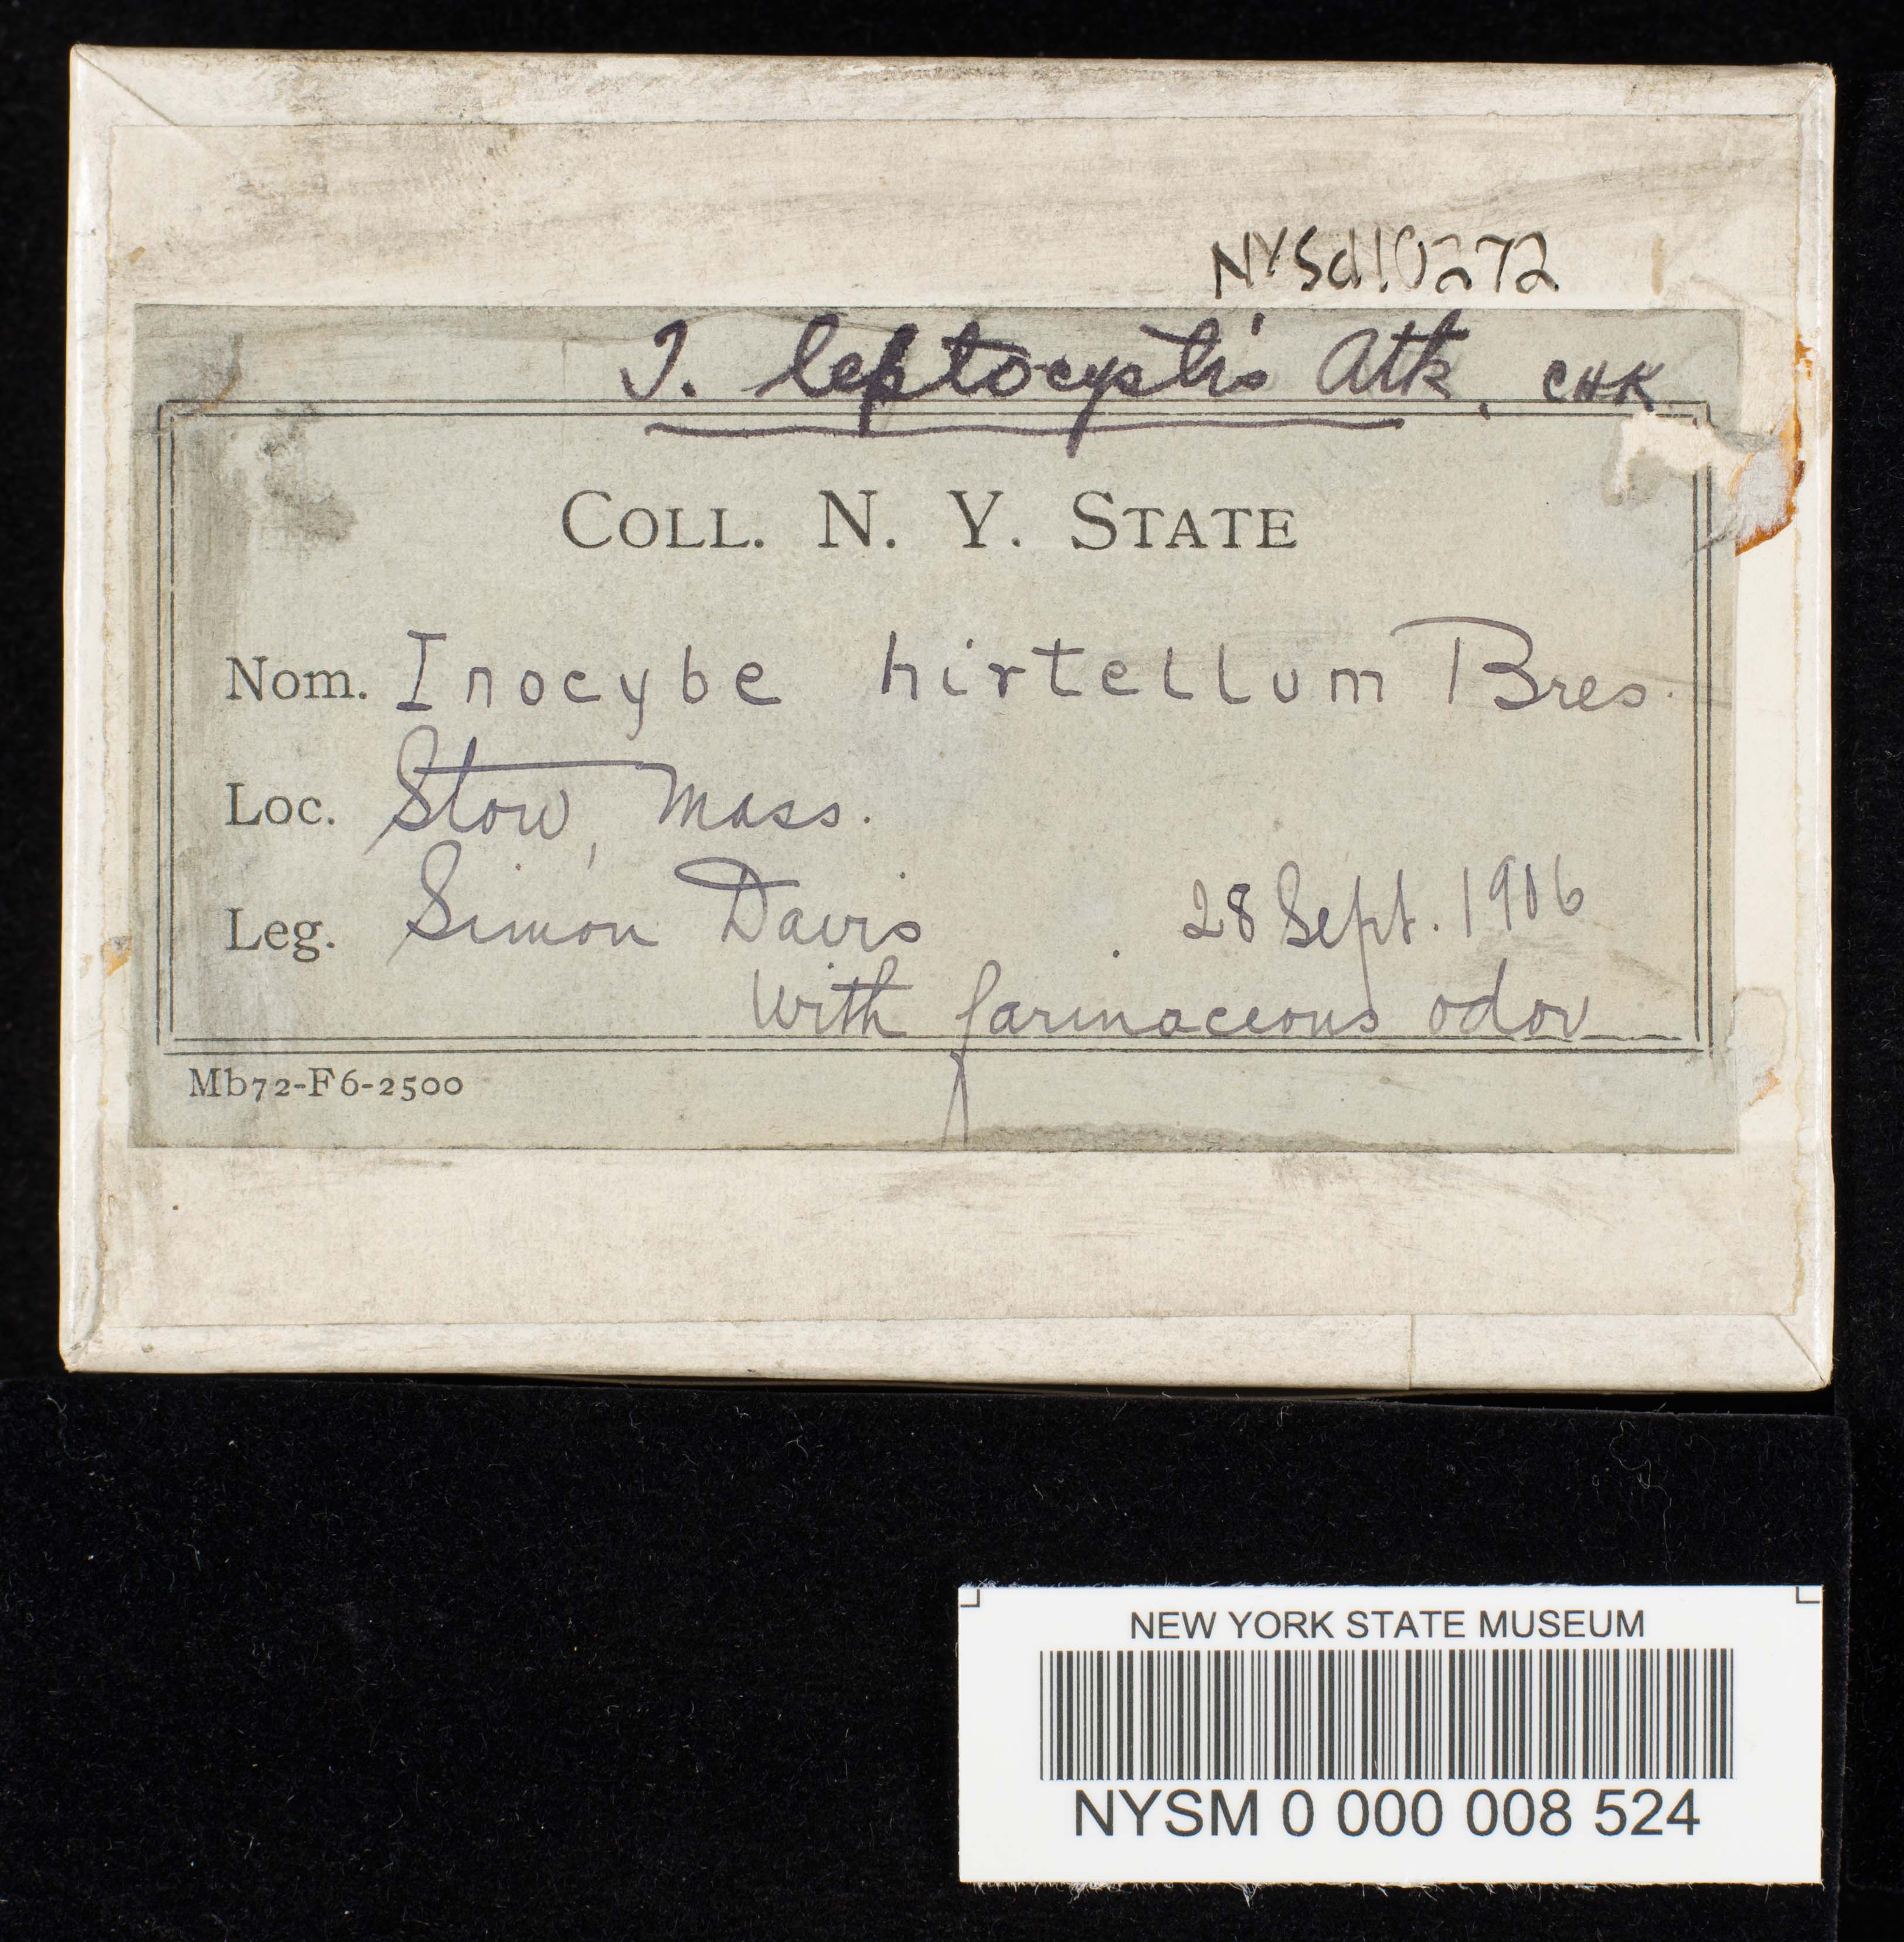 NYSd10272
I. leptocystis Atk. CHK
COLL. N. Y. STATE
Nom. Inocybe hirtellum Bres.
Loc. Stow, Mass.
Leg. Simon Davis 28 Sept. 1906
with farinaceous odor
Mb72-F6-2500
NEW YORK STATE MUSEUM
NYSM 0 000 008 524